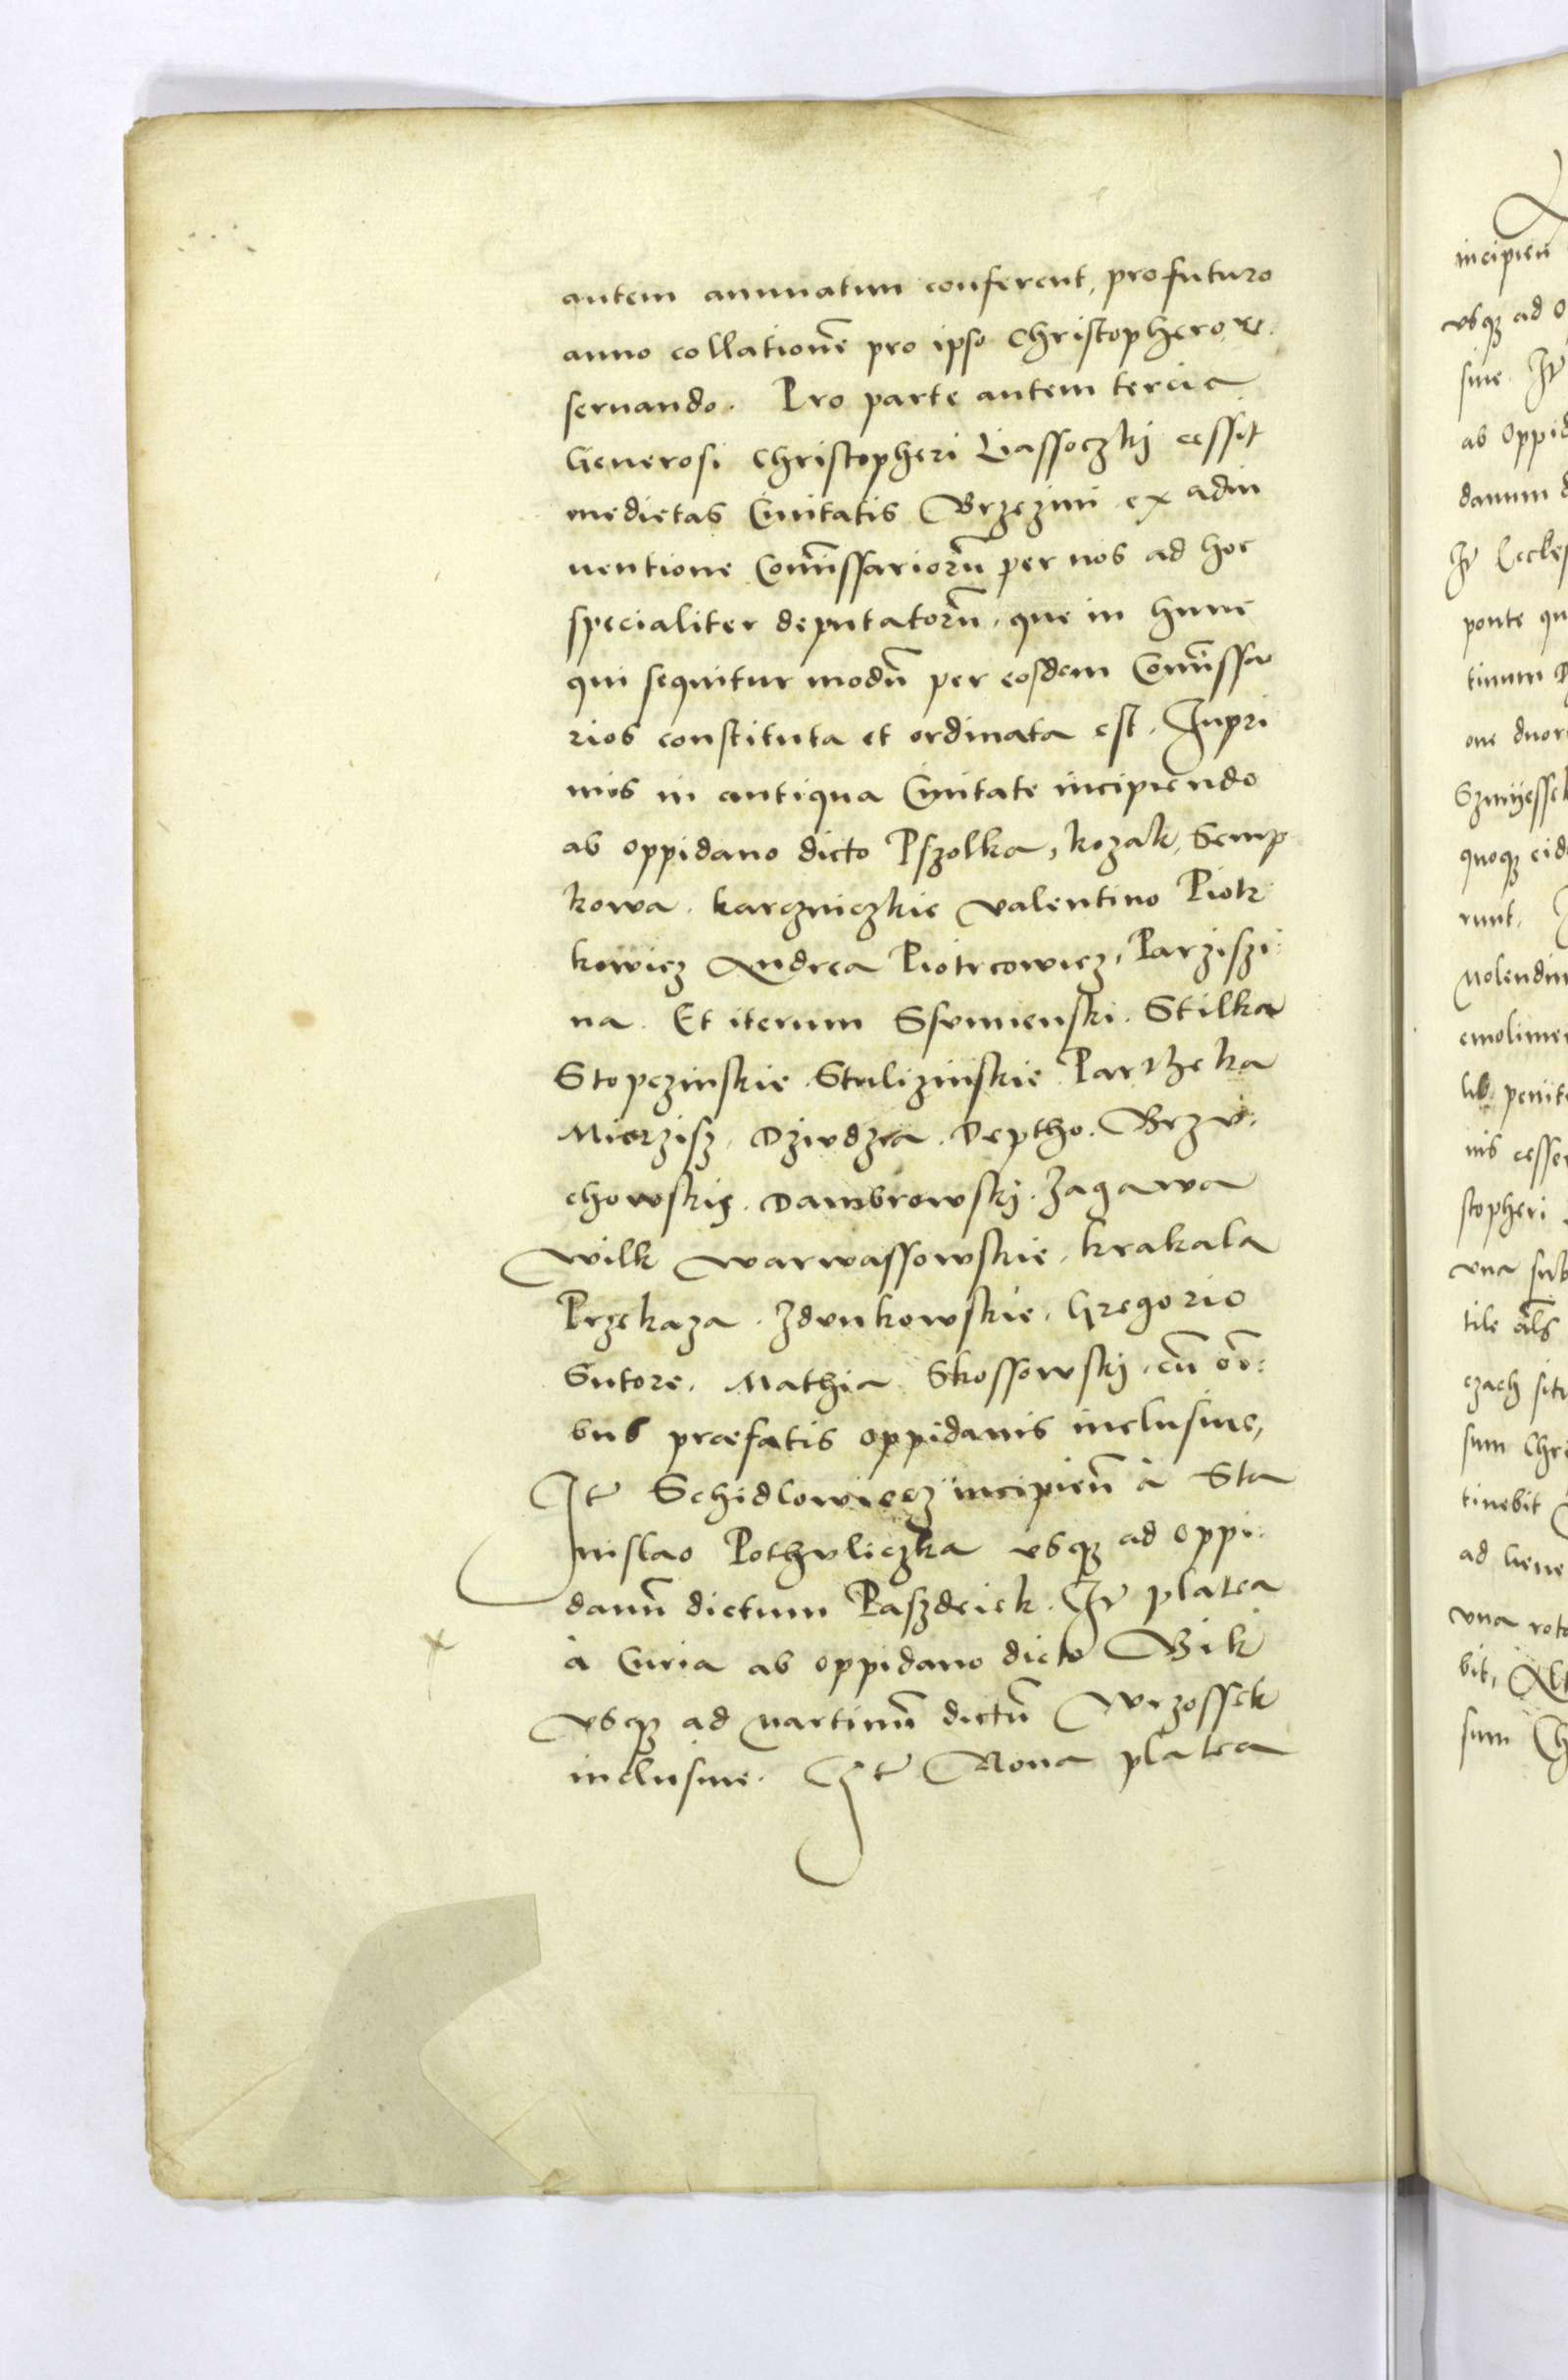 autem annuatim conferent, pro futuro
anno collationē pro ipso Christophero re
seruando. Pro parte autem tercia
Generosi Christopheri Lassoczkj cessit
medietas Ciuitatis Brzezini ex adin
uentione Com̄issariorū per nos ad hoc
specialiter deputatorū, que in hunc
qui sequitur modū per eosdem Com̄issa
rios constituta et ordinata est. Inpri
mis in antiqua Ciuitate incipiendo
ab oppidano dicto Pszolka, Kozak, Semp
kowa. karczniczkie valentino Piotr
kowicz Andrea Piotrcowicz, Parziszi:
na. Et iterum Stilka
Stopczinskie. Stulizinskie. Partheka
Mierzisz. Dziudzia. Deptho. Brzu:
chowskie. Dambrowskj. Zagawa
Wilk Warwassowskie. krakala
Przekaza. Zdunkowskie. Gregorio
Sutore. Mathia Skossowskj. cū om̄:
bus præfatis oppidanis inclusiue,
It̄ Schidlowiecz incipien̄ à Sta
nislao Pothuliczka usq3 ad oppi:
danū dictum Paszdeiek. It̄ platea
à Curia ab oppidano dicto Bik
usq3 ad Martinū dictū Wrzossek
inclusiue. It̄ Noua platea
incipien̄
usq3 ad o
siue. It̄
ab Oppid
danum d
It̄ Eccles
ponte qu
tinum
one duor
quoq3 eid
runt.
Molendin
emolimen
nis cesser
stopheri
una sub
tile al̄s
czach situ
sum Chr
tinebit
ad Gene
una rota
bit, Alt
sum Ch